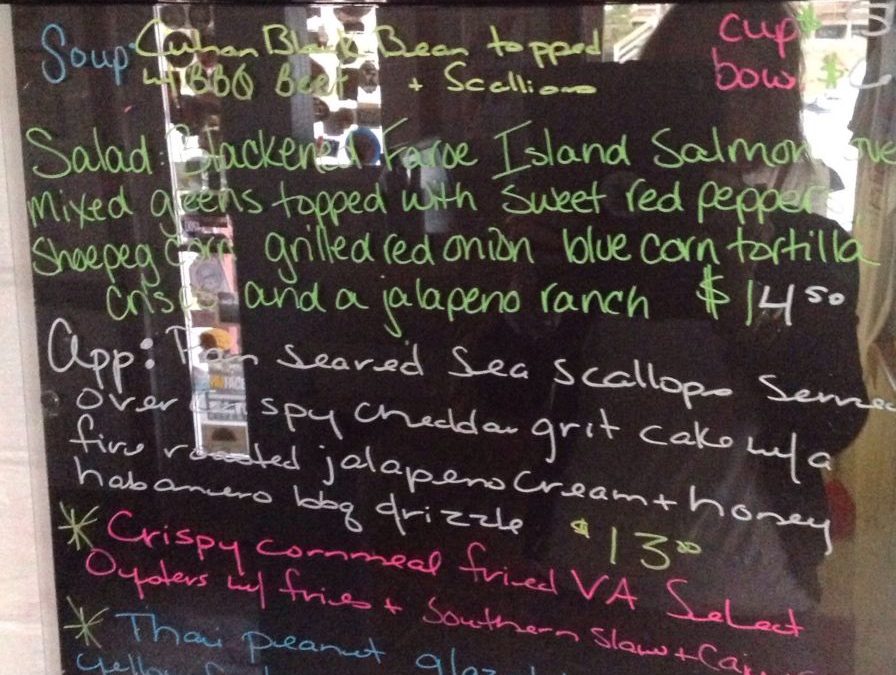 Soup: Cuban Black Bean topped
w/ BBQ Beef + Scallions
cup $
bowl $
Salad: Blackened Faroe Island Salmon
mixed greens topped with sweet red pepper
Shoepeg corn grilled red onion blue corn tortilla
crisps and a jalapeno ranch $14.50
App: Pan seared Sea Scallops Served
over crispy cheddar grit cake w/ a
fire roasted jalapeno cream + honey
habanero bbq drizzle $13.00
* Crispy cornmeal fried VA Select
Oysters w/ fries + Southern Slaw +
* Thai peanut
yellow